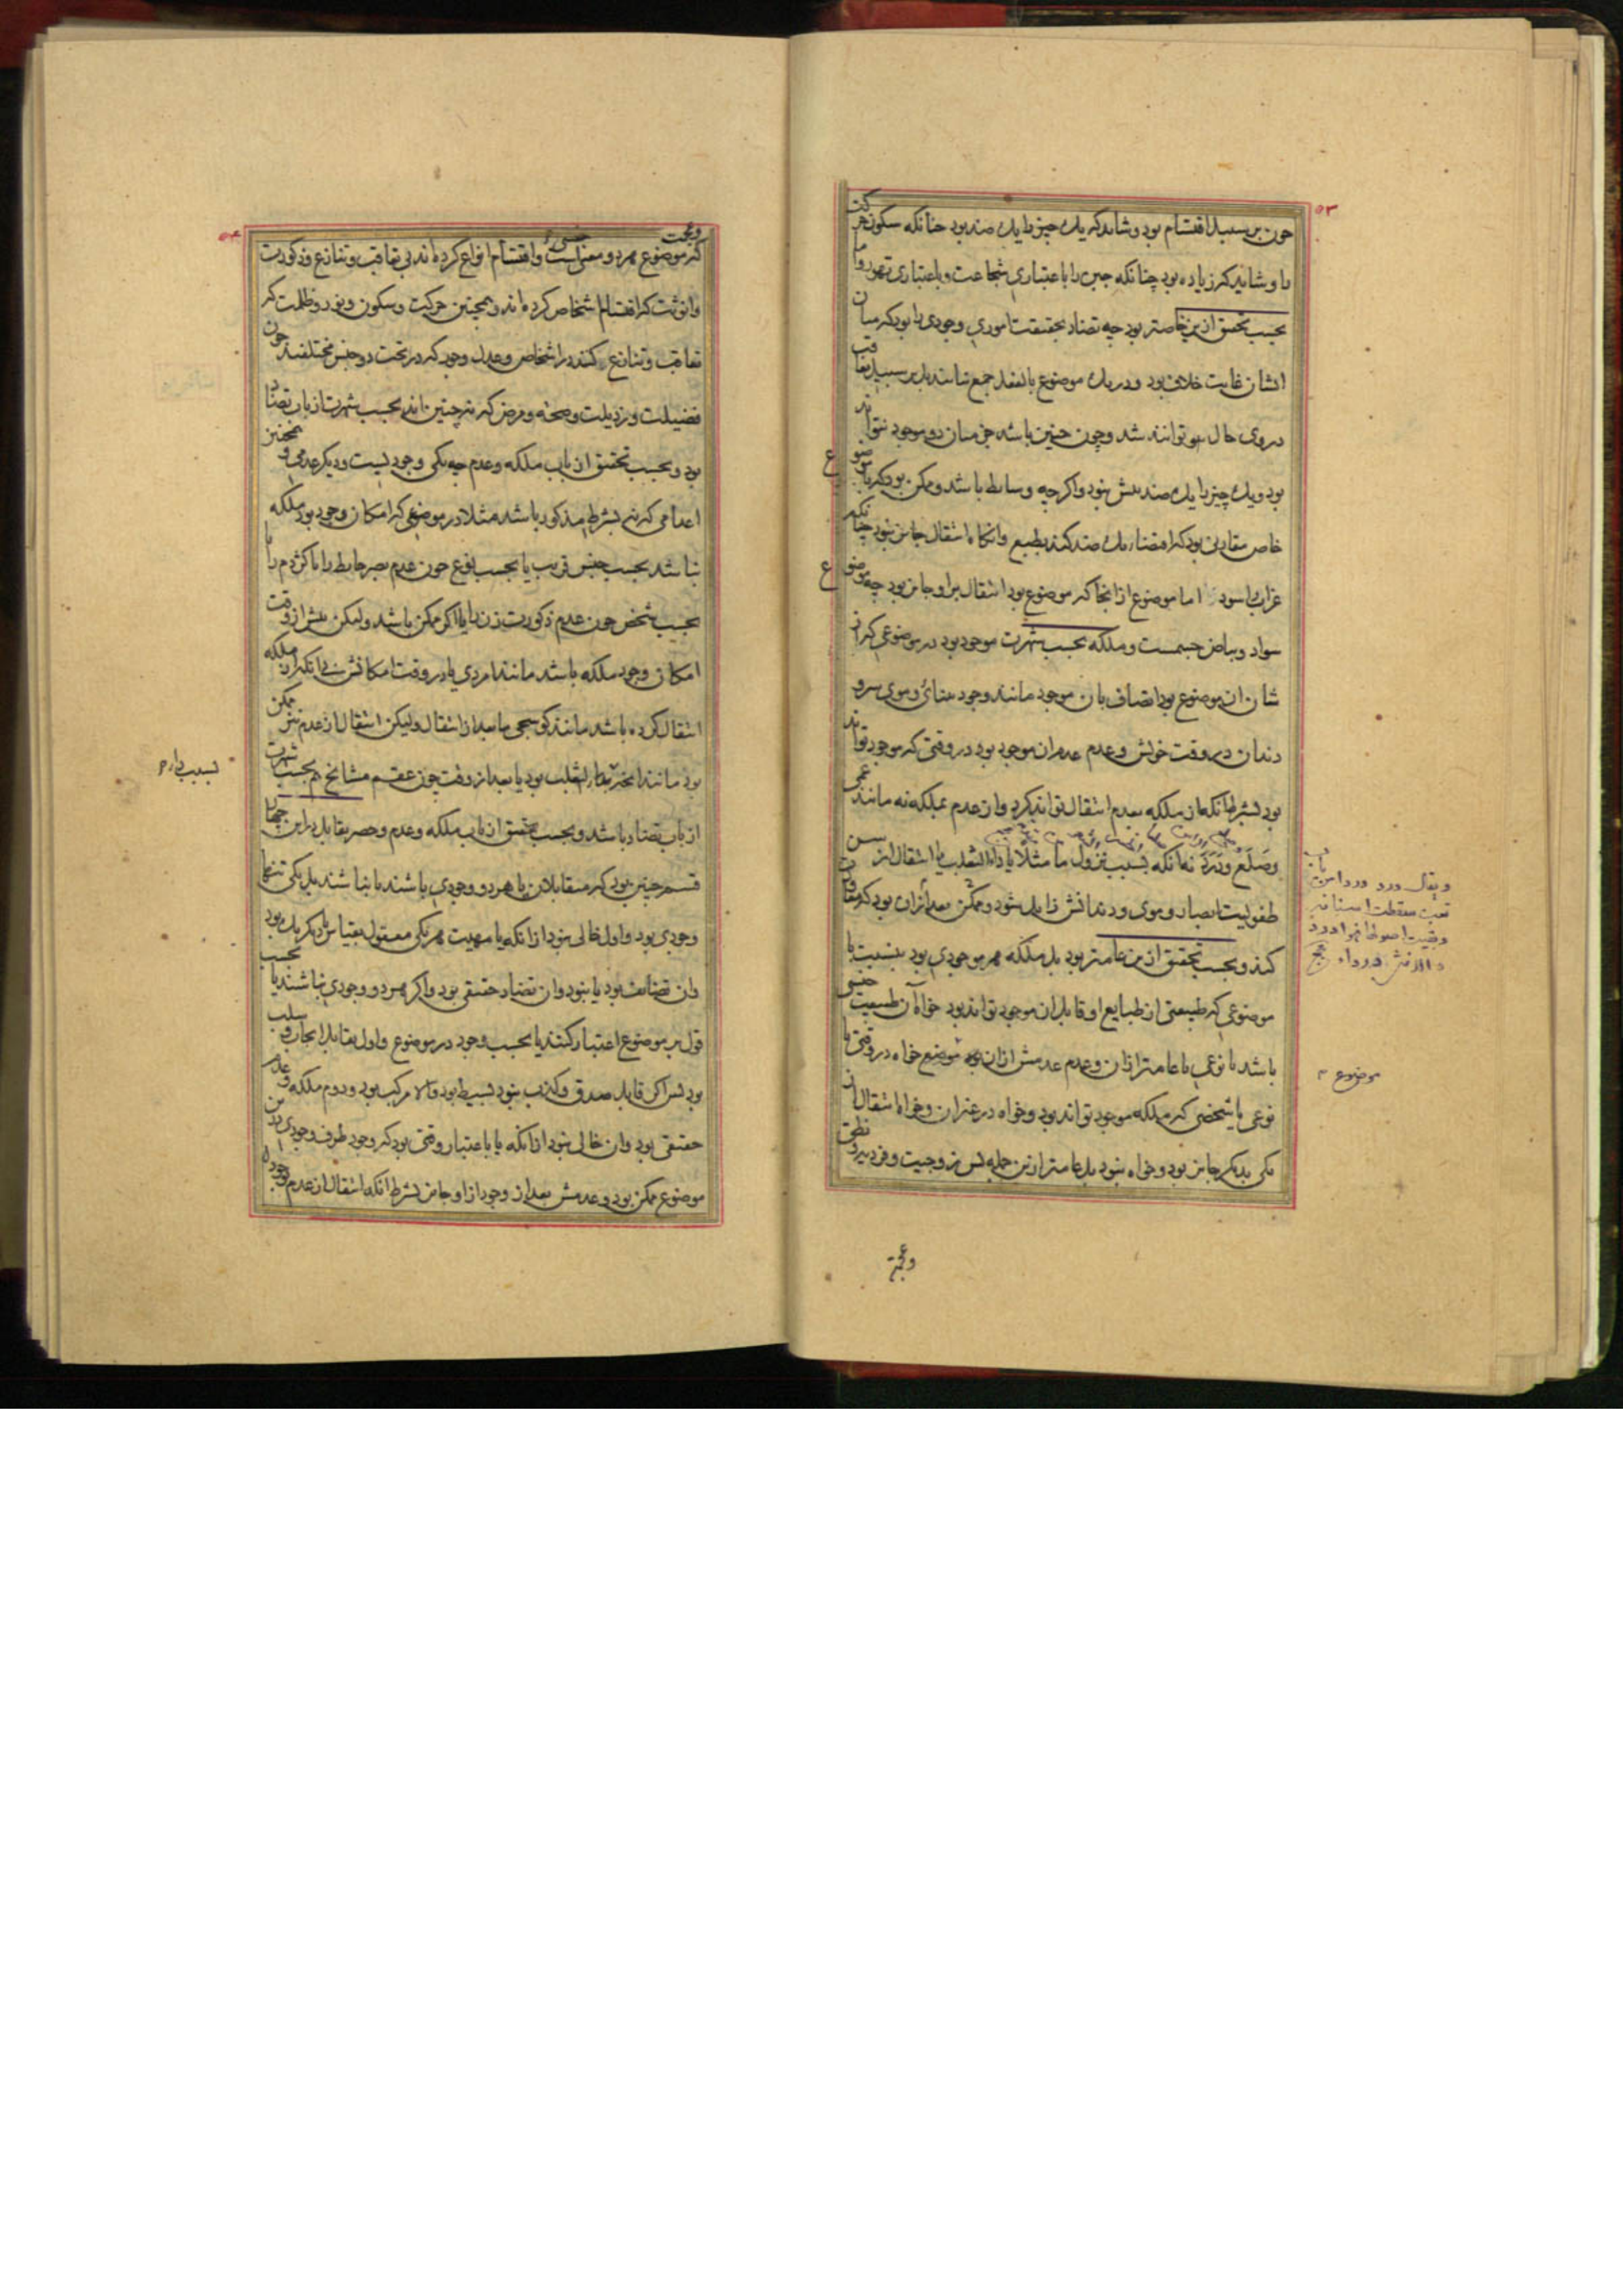 ۵۳
چون بر سبیل اقتسام بود و شاید که یک چیز را یک ضد بود چنانکه سکون حرکت
را و شاید که زیاده بود چنانکه جبن را باعتباری شجاعت و باعتباری تهور و اما
بحسب تحقیق ازین خاصتر بود چه تضاد بحقیقت اموری وجودی را بود که میان
ایشان غایت خلاف بود و در یک موضوع بالفعل جمع نیایند بل بر سبیل تعاقب
در وی حال توانند شد و چون چنین باشد جز میان دو موجود نتواند
بود و یک چیز را یک ضد بیش نبود و اگرچه وسایط باشد و ممکن بود که با موضوع
خاص مقارن بود که اقتضاء یک ضد کند بطبع و آنگاه انتقال جایز نبود چنانکه
غراب اسود اما موضوع از آنجا که موضوع بود انتقال برو جایز بود چه موضوع
سواد و بیاض جسمست و ملکه بحسب شهرت موجود بود در موضوعی که از
شان آن موضوع بود اتصاف بآن موجود مانند وجود بینائی و موی سر و
دندان در وقت خویش و عدم عدم آن موجود بود در وقتی که موجود تواند
بود بشرط آنکه از ملکه بعدم انتقال تواند کرد و از عدم بملکه نه مانند عمی
و صلع و درد نه آنکه بسبب نزول ما مثلا یا داء الثعلب یا انتقال از سن
طفولیت ابصار و موی و دندانش زایل شود و ممکن بعد از آن بود که معاودت
کند و بحسب تحقیق ازین عامتر بود بل ملکه هر موجودی بود بنسبت با
موضوعی که طبیعتی از طبایع او قابل آن موجود تواند بود خواه آن طبیعت جنسی
باشد یا نوعی یا عامتر از آن و عدم عدمش از آن موضع خواه در وقتی با
نوعی یا شخصی که ملکه موجود تواند بود و خواه در غیر آن و خواه انتقال از
یکی بدیگر جایز بود و خواه نبود بل عامتر ازین جمله پس زوجیت و فردیت و نطق
ویقال درد درداس
موضوع
وعجمت
۵۴
وعجمت
که موضوع هر دو معنی است و اقتسام انواع کرده اند بی تعاقب و تنازع و ذکورت
و انوثت که اقتسام اشخاص کرده اند و همچنین حرکت و سکون و نور و ظلمت که
تعاقب و تنازع کنند در اشخاص و عدل وجود که در تحت دو جنس مختلفند چون
فضیلت و رذیلت و صحة و مرض که نه چنین اند بحسب شهرت از باب تضاد
بود و بحسب تحقیق از باب ملکه و عدم چه یکی وجودیست و دیگر عدمی و همچنین
اعدامی که نه بشرط مذکور باشد مثلا در موضوعی که امکان وجود بود ملکه
نباشد بحسب جنس قریب یا بحسب نوع چون عدم بصر حایط را یا کژدم را یا
بحسب شخص چون عدم ذکورت زن را یا اگر ممکن باشد ولیکن پیش از وقت
امکان وجود ملکه باشد مانند امردی یا در وقت امکانش بی آنکه از ملکه
انتقال کرده باشد مانند کوسجی یا بعد از انتقال ولیکن انتقال از عدم نیز ممکن
بود مانند آنچه بداء الثعلب بود یا بعد از وقت چون عقم مشایخ هم بحسب شهرت
از باب تضاد باشد و بحسب تحقیق از باب ملکه و عدم و حصر تقابل درین چهار
قسم چنین بود که متقابلان یا هر دو وجودی باشند یا نباشند بل یکی تنها
وجودی بود و اول خالی نبود از آنکه یا مهیت هر یکی معقول بقیاس با دیگر یک بود
و آن تضایف بود یا نبود و آن تضاد حقیقی بود و اگر هر دو وجودی نباشند یا بحسب
قول بر موضوع اعتبار کنند یا بحسب وجود در موضوع و اول تقابل ایجاب و سلب
بود پس اگر قابل صدق و کذب نبود بسیط بود و الا مرکب بود و دوم ملکه و عدم
حقیقی بود و آن خالی نبود از آنکه یا باعتبار وقتی بود که وجود طرف وجودی در آن
موضوع ممکن بود و عدمش بعد از وجود ازو جایز بشرط آنکه انتقال از عدم بوجود
بسبب داء